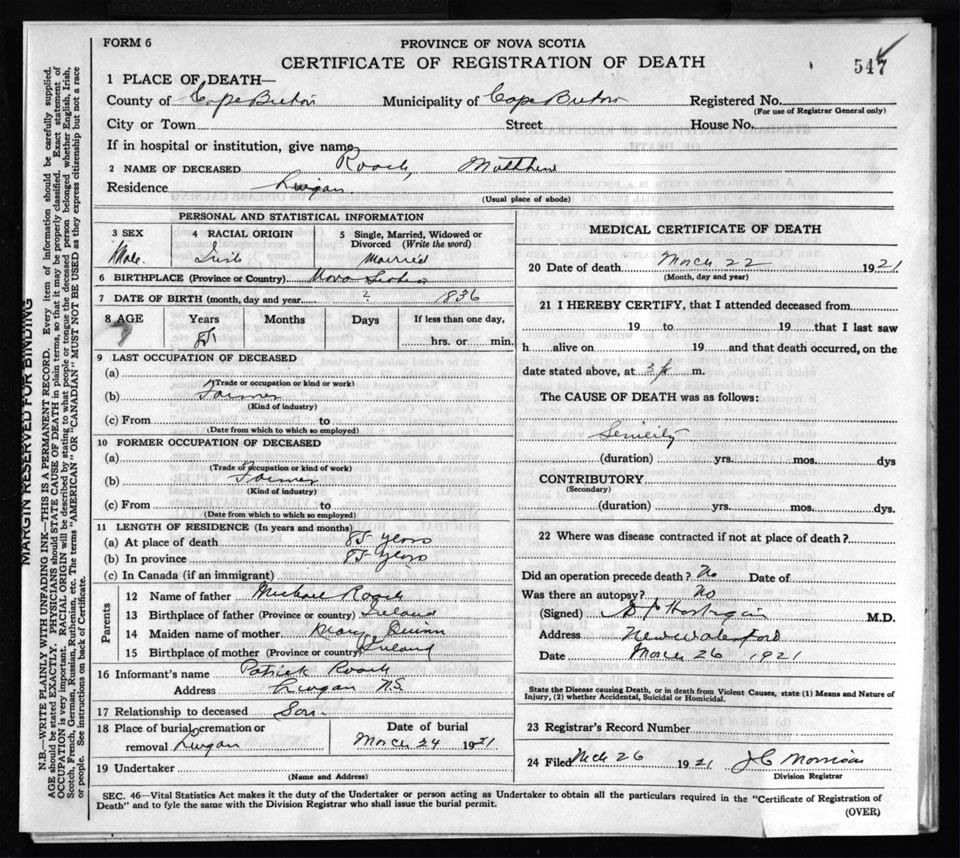 FORM 6
PROVINCE OF NOVA SCOTIA
CERTIFICATE OF REGISTRATION OF DEATH
547
1 PLACE OF DEATH—
County of Cape Breton Municipality of Cape Breton Registered No.
(For use of Registrar General only)
City or Town Street House No.
If in hospital or institution, give name
2 NAME OF DECEASED Roach, Matthew
Residence Lingan
(Usual place of abode)
PERSONAL AND STATISTICAL INFORMATION
3 SEX Male
4 RACIAL ORIGIN Irish
5 Single, Married, Widowed or Divorced (Write the word) Married
6 BIRTHPLACE (Province or Country) Nova Scotia
7 DATE OF BIRTH (month, day and year) ? 1836
8 AGE Years 85 Months Days If less than one day, hrs. or min.
9 LAST OCCUPATION OF DECEASED
(a)
(Trade or occupation or kind of work)
(b) Farmer
(Kind of industry)
(c) From to
(Date from which to which so employed)
10 FORMER OCCUPATION OF DECEASED
(a)
(Trade of occupation or kind of work)
(b) Farmer
(Kind of industry)
(c) From to
(Date from which to which so employed)
11 LENGTH OF RESIDENCE (In years and months)
(a) At place of death 85 years
(b) In province 85 years
(c) In Canada (if an immigrant)
Parents
12 Name of father Michael Roach
13 Birthplace of father (Province or country) Ireland
14 Maiden name of mother Mary Quinn
15 Birthplace of mother (Province or country) Ireland
16 Informant's name Patrick Roach
Address Lingan N.S.
17 Relationship to deceased Son
18 Place of burial, cremation or removal Lingan
Date of burial March 24 1921
19 Undertaker
(Name and Address)
MEDICAL CERTIFICATE OF DEATH
20 Date of death March 22 1921
(Month, day and year)
21 I HEREBY CERTIFY, that I attended deceased from
19 to 19 that I last saw
h alive on 19 and that death occurred, on the
date stated above, at 3 p m.
The CAUSE OF DEATH was as follows:
Senility
(duration) yrs. mos. dys
CONTRIBUTORY
(Secondary)
(duration) yrs. mos. dys.
22 Where was disease contracted if not at place of death?
Did an operation precede death? No Date of
Was there an autopsy? No
(Signed) M.D.
Address New Waterford
Date March 26 1921
State the Disease causing Death, or in death from Violent Causes, state (1) Means and Nature of
Injury, (2) whether Accidental, Suicidal or Homicidal.
23 Registrar's Record Number
24 Filed Mch 26 1921 J C Morrison
Division Registrar
SEC. 46—Vital Statistics Act makes it the duty of the Undertaker or person acting as Undertaker to obtain all the particulars required in the "Certificate of Registration of
Death" and to fyle the same with the Division Registrar who shall issue the burial permit.
(OVER)
MARGIN RESERVED FOR BINDING
N.B.—WRITE PLAINLY WITH UNFADING INK—THIS IS A PERMANENT RECORD. Every item of information should be carefully supplied.
AGE should be stated EXACTLY. PHYSICIANS should STATE CAUSE OF DEATH in plain terms, so that it may be properly classified. Exact statement of
OCCUPATION is very important. RACIAL ORIGIN will be described by stating to what people or tongue the deceased person belonged whether English, Irish,
Scotch, French, German, Russian, Ruthenian, etc. The terms "AMERICAN" OR "CANADIAN" MUST NOT BE USED as they express citizenship but not a race
or people. See instructions on back of Certificate.